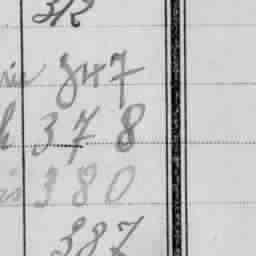 312
347
378
380
387